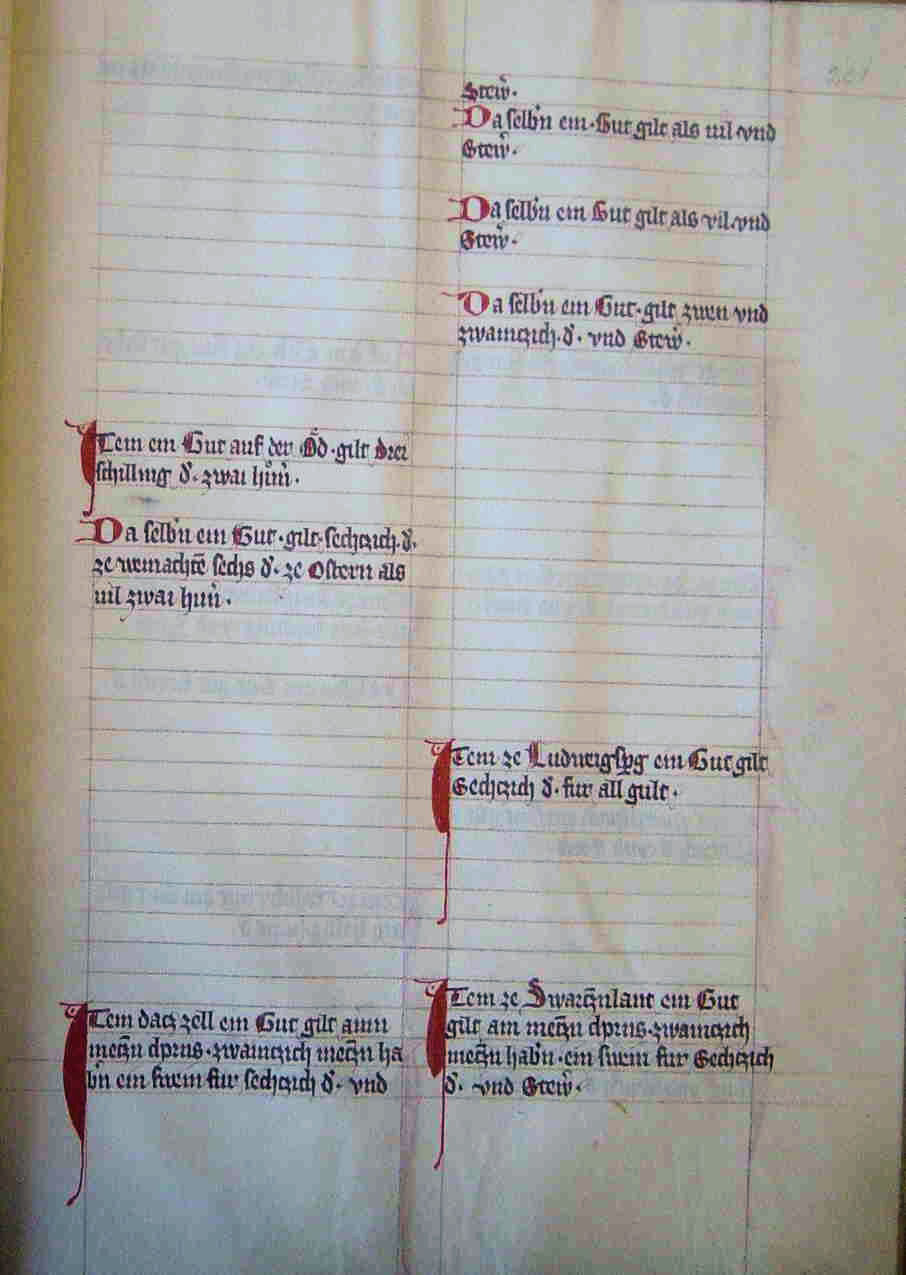 Item ein Gut auf der Ǒd · gilt drei
schilling d᷎ · zwai hůn̄ ·
Da selb'n ein Gut · gilt · sechtzich · d᷎ ·
ze weinachtē sechs d᷎ · ze Ostern als
uil zwai hun̄ ·
Item datz zell ein Gut gilt ainn
metzn dprns · zwaintzich metzn ha
b'n ein swein fur sechtzich d᷎ · vnd
Stew̄ ·
Da selb'n ein · Gut gilt als uil · vnd
Stew̄ ·
Da selb'n ein Gut gilt als vil · vnd
Stew̄ ·
Da selb'n ein Gut · gilt zwen vnd
zwaintzich · d᷎ · vnd Stew̄ ·
Item ze Ludweigsp̄g ein Gut gilt
Sechtzich d᷎ · fur all gult ·
Item ze Swartznlant ein Gut
gilt ain metzn dprns · zwaintzich
metzn hab'n · ein swein fur Sechtzich
d᷎ · vnd Stew̄ ·